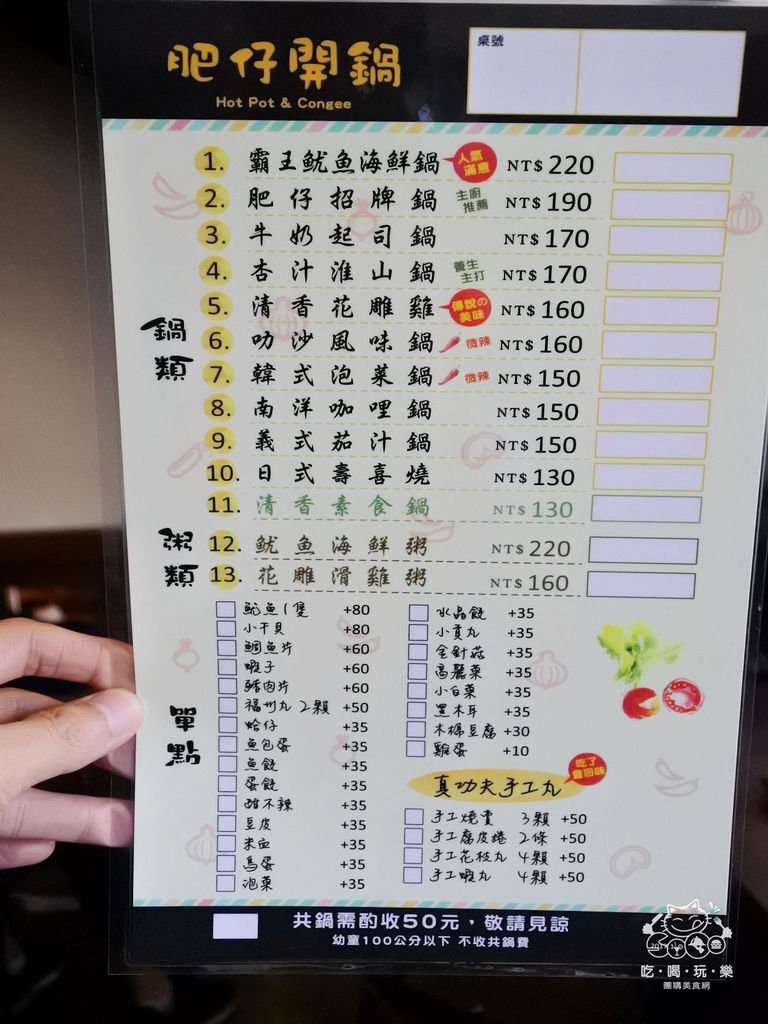 肥仔開鍋
Hot Pot & Congee
桌號
鍋類
1. 霸王魷魚海鮮鍋 人氣滿意 NT$ 220
2. 肥仔招牌鍋 主廚推薦 NT$ 190
3. 牛奶起司鍋 NT$ 170
4. 杏汁淮山鍋 養生主打 NT$ 170
5. 清香花雕雞 傳說の美味 NT$ 160
6. 叻沙風味鍋 微辣 NT$ 160
7. 韓式泡菜鍋 微辣 NT$ 150
8. 南洋咖哩鍋 NT$ 150
9. 義式茄汁鍋 NT$ 150
10. 日式壽喜燒 NT$ 130
11. 清香素食鍋 NT$ 130
粥類
12. 魷魚海鮮粥 NT$ 220
13. 花雕滑雞粥 NT$ 160
單點
魷魚1隻 +80
小干貝 +80
鯛魚片 +60
蝦子 +60
豬肉片 +60
福州丸 2顆 +50
蛤仔 +35
魚包蛋 +35
魚餃 +35
蛋餃 +35
甜不辣 +35
豆皮 +35
米血 +35
鳥蛋 +35
泡菜 +35
水晶餃 +35
小貢丸 +35
金針菇 +35
高麗菜 +35
小白菜 +35
黑木耳 +35
木棉豆腐 +30
雞蛋 +10
真功夫手工丸 吃了會回味
手工燒賣 3顆 +50
手工腐皮捲 2條 +50
手工花枝丸 4顆 +50
手工蝦丸 4顆 +50
共鍋需酌收50元，敬請見諒
幼童100公分以下 不收共鍋費
吃‧喝‧玩‧樂
團購美食網